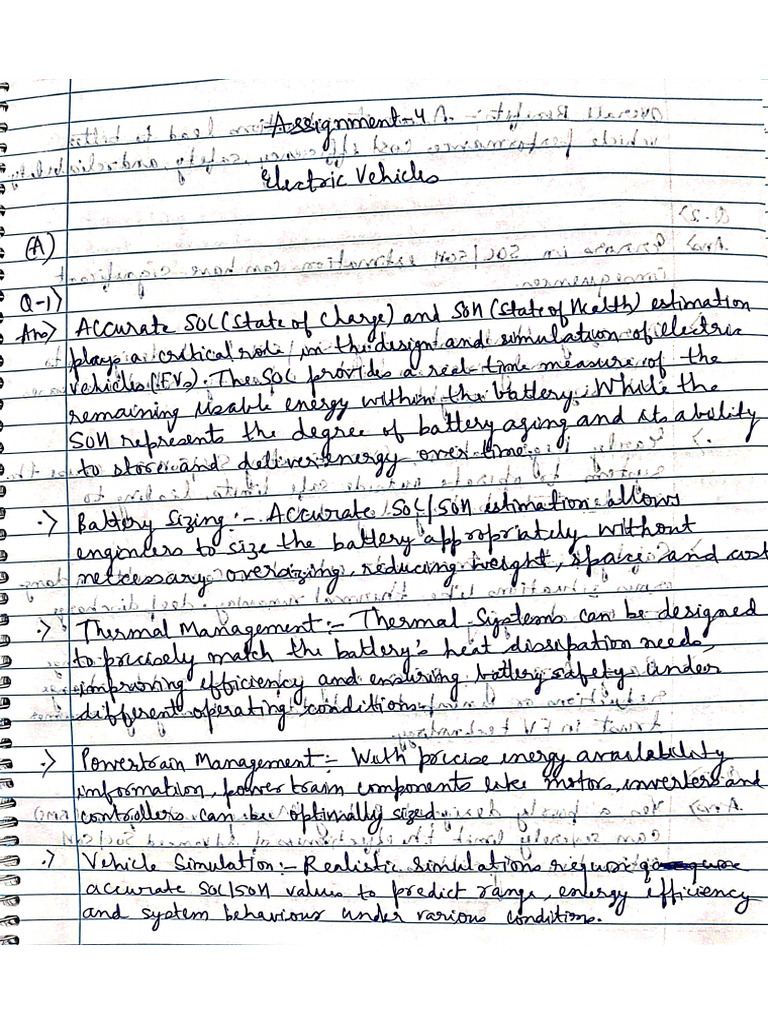 Assignment-4
Electric Vehicles
(A)
Q-1)
Ans) Accurate SOC (State of Charge) and SOH (State of Health) estimation
plays a critical role in the design and simulation of electric
vehicles (EVs). The SOC provides a real-time measure of the
remaining usable energy within the battery. While the
SOH represents the degree of battery aging and its ability
to store and deliver energy over time.
.> Battery Sizing :- Accurate SOC/SOH estimation allows
engineers to size the battery appropriately without
neccessary oversizing, reducing weight, space and cost
.> Thermal Management :- Thermal Systems can be designed
to precisely match the battery's heat dissipation needs,
improving efficiency and ensuring battery safety under
different operating conditions.
.> Powertrain Management :- With precise energy availability
information, powertrain components like motors, inverters and
controllers can be optimally sized.
.> Vehicle Simulation :- Realistic simulations require
accurate SOC/SOH values to predict range, energy efficiency
and system behaviour under various conditions.